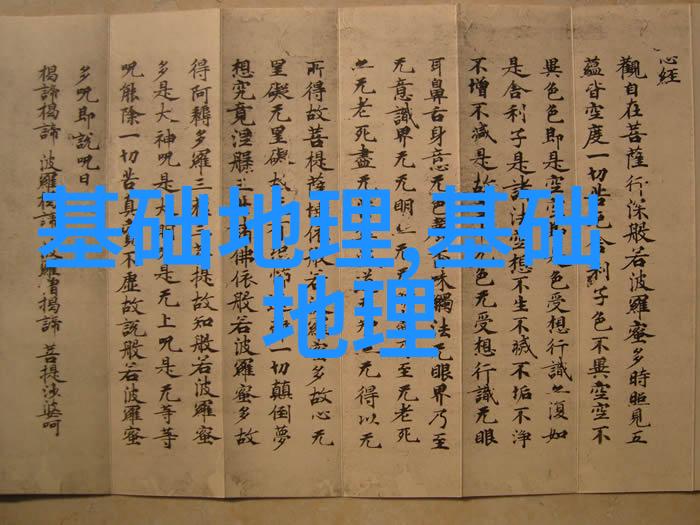 基础地理,基础
地理
心经
觀自在菩薩行深般若波羅蜜多時照見五
蘊皆空度一切苦厄舍利子色不異空空不
異色色即是空空是色受想行識亦復如
是舍利子是諸法空想不生不滅不垢不淨
不增不減是故色无受想行識无眼
耳鼻舌身意无色味觸法无眼界乃至
无意識界无无明无乃至无老死
亦无老死盡无无得以无
所得故菩提薩埵依般若波羅蜜多故心无
罣礙无罣礙故有恐怖一切顛倒夢
想究竟涅槃三世佛依般若波羅蜜多故
得阿耨多羅三菩提故知般若波羅蜜
多是大神呪是大明是无上呪是无等等
呪能除一切苦真實不虛故說般若波羅蜜
多呪即說呪曰
揭諦揭諦 波羅揭諦 波羅僧揭諦 菩提娑婆呵